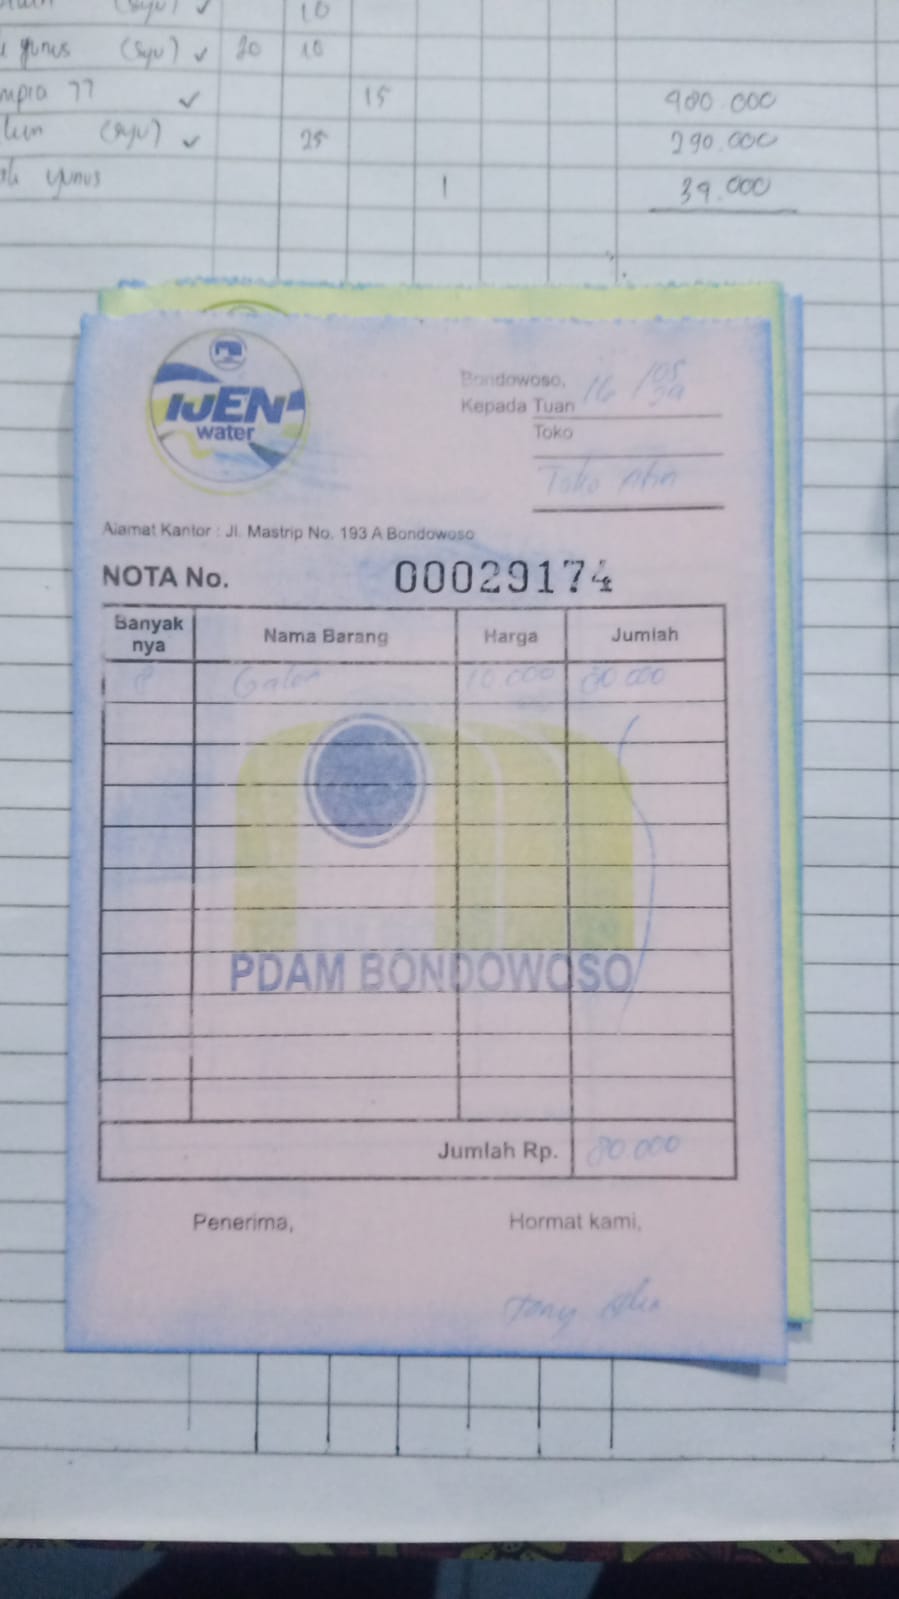 (Syu) ✓ 10
yunus (Syu) ✓ 20 10
77 ✓ 15 900.000
✓ 25 290.000
yunus 1 39.000
IJEN
water
Bondowoso, 16 /05
Kepada Tuan
Toko
Toko
Alamat Kantor : Jl. Mastrip No. 193 A Bondowoso
NOTA No. 00029174
Banyak nya Nama Barang Harga Jumlah
8 Galon 10 000 80 000
PDAM BONDOWOSO
Jumlah Rp. 80.000
Penerima, Hormat kami,
Tony